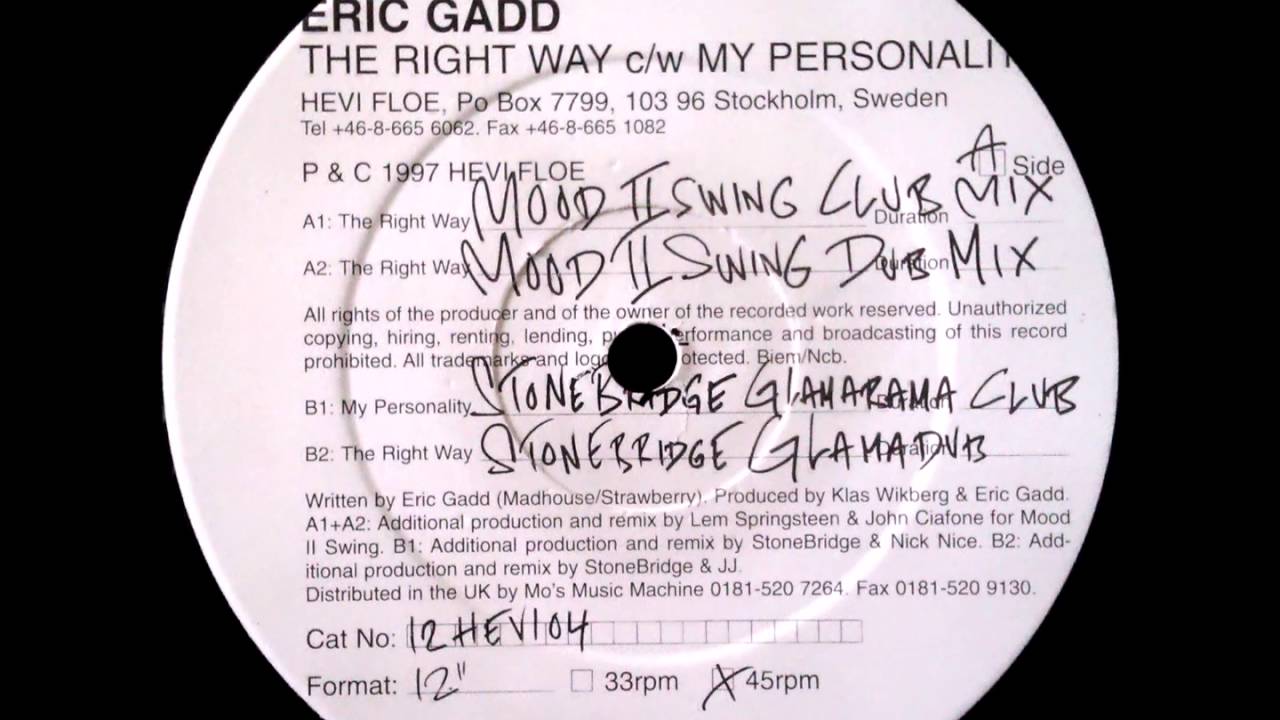 ERIC GADD
THE RIGHT WAY c/w MY PERSONALIT
HEVI FLOE, Po Box 7799, 103 96 Stockholm, Sweden
Tel +46-8-665 6062. Fax +46-8-665 1082
P & C 1997 HEVI FLOE
A Side
A1: The Right Way MOOD II SWING CLUB MIX Duration
A2: The Right Way MOOD II SWING DUB MIX Duration
All rights of the producer and of the owner of the recorded work reserved. Unauthorized
copying, hiring, renting, lending, p erformance and broadcasting of this record
prohibited. All trademarks and logo otected. Biem/Ncb.
B1: My Personality STONEBRIDGE GLAMARAMA CLUB Duration
B2: The Right Way STONEBRIDGE GLAMADUB Duration
Written by Eric Gadd (Madhouse/Strawberry). Produced by Klas Wikberg & Eric Gadd.
A1+A2: Additional production and remix by Lem Springsteen & John Ciafone for Mood
II Swing. B1: Additional production and remix by StoneBridge & Nick Nice. B2: Add-
itional production and remix by StoneBridge & JJ.
Distributed in the UK by Mo's Music Machine 0181-520 7264. Fax 0181-520 9130.
Cat No: 12HEV104
Format: 12" 33rpm X 45rpm